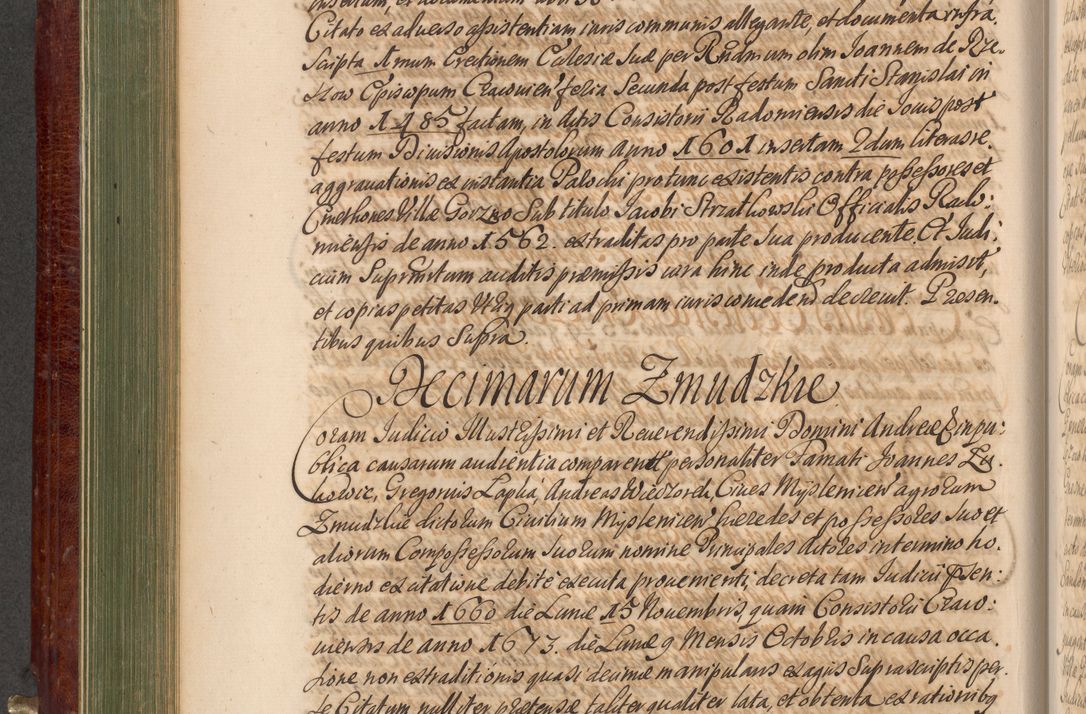 Citato ex adverso assistentiam iuris communis allegante, et documenta infra
Scripta 1mum Erectionem Ecclesiæ Suæ per Rndmum olim Joannem de Rze-
szow Episcopum Cracovien feria Secunda post festum Sancti Stanislai in
anno 1485 factam, in Actis Consistorii Radomiensis die Jovis post
festum Divisionis Apostolorum Anno 1601 insertam 2dum literas re
aggravationis ex instantia Parochi pro tunc existentis contra possessores et
Cmethones Villæ Gorzno Sub titulo Jacobi Strzałkowski Officialis Rado-
miensis de anno 1562. extraditas pro parte Sua producente. Et Judi-
cium Supremum auditis præmissis iura hinc inde producta admisit,
et copias petitas utriq parti ad primam iuris comedend decrevit. Præsen-
tibus quibus Supra.
Decimarum Zmudzkie
Coram Judicio Illustrissimi et Reverendissimi Domini Andreæ Ein pu-
blica causarum audientia comparentes personaliter Famati Joannes Zu-
howic, Gregorius Lapka, Andreas Wieczorek, Cives Myslenicen agrorum
Zmudzkie dictorum Civilium Myslenicen hæredes et possessores Suo et
aliorum Compossessorum Suorum nomine Principales Actores in termino ho-
dierno ex citatione debite executa provenienti, decreta tam Judicii Præsen-
tis de anno 1660 die Lunæ 15 Novembris, quam Consistorii Craco-
viensis de anno 1673. die Lunæ 9 Mensis Octobris in causa occa-
sione non extraditionis quasi decimæ manipularis ex agris Suprascriptis per
Se Citatum nulliter prætense taliter qualiter lata, et obtenta ex rationibq